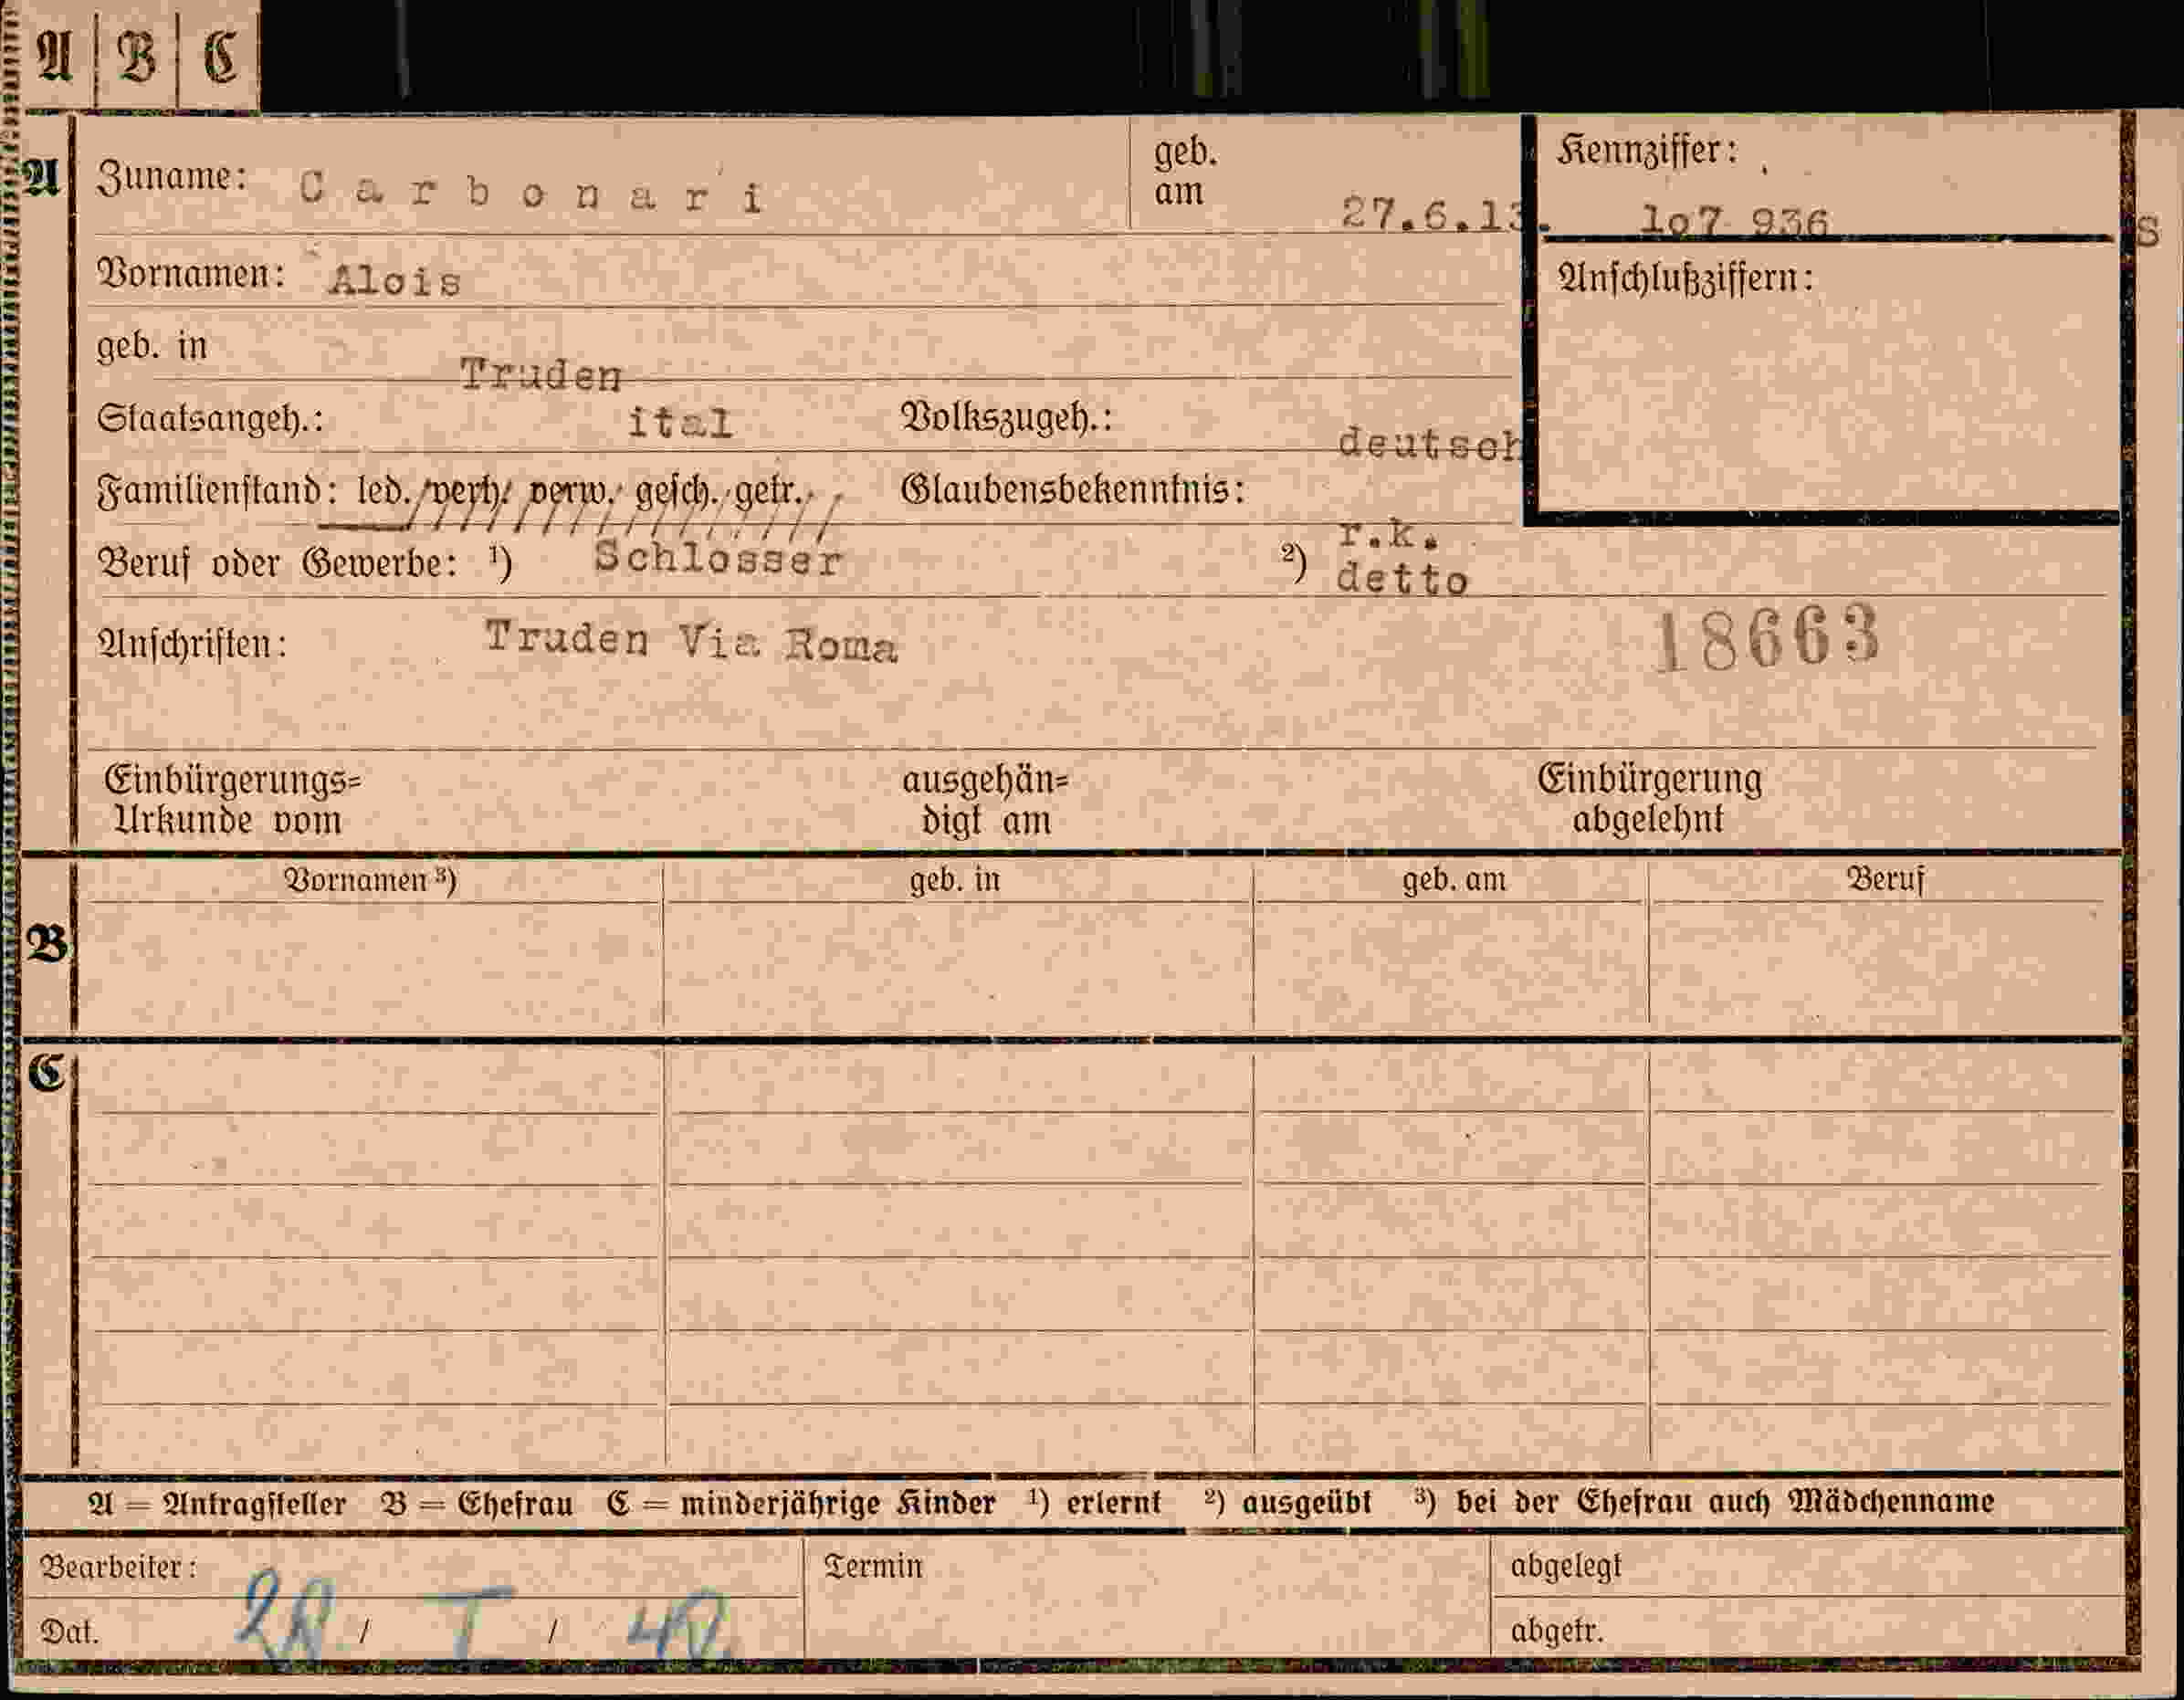 A | B | C
A
Zuname: Carbonari
geb.
am 27.6.13.
Kennziffer:
lo7 936
S
Vornamen: Alois
Anschlußziffern:
geb. in Truden
Staatsangeh.: ital Volkszugeh.: deutsch
Familienstand: led. verh. verw. gesch. getr. Glaubensbekenntnis: r.k.
Beruf oder Gewerbe: ¹) Schlosser ²) detto
Anschriften: Truden Via Roma
18663
Einbürgerungs=
Urkunde vom
ausgehän=
digt am
Einbürgerung
abgelehnt
B
Vornamen ³) geb. in geb. am Beruf
C
A = Antragsteller B = Ehefrau C = minderjährige Kinder ¹) erlernt ²) ausgeübt ³) bei der Ehefrau auch Mädchenname
Bearbeiter: Termin abgelegt
Dat. / I / abgetr.